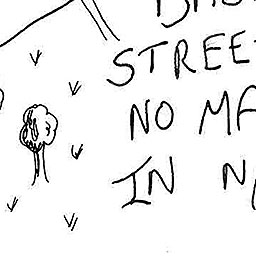 STREE
NO MA
IN N